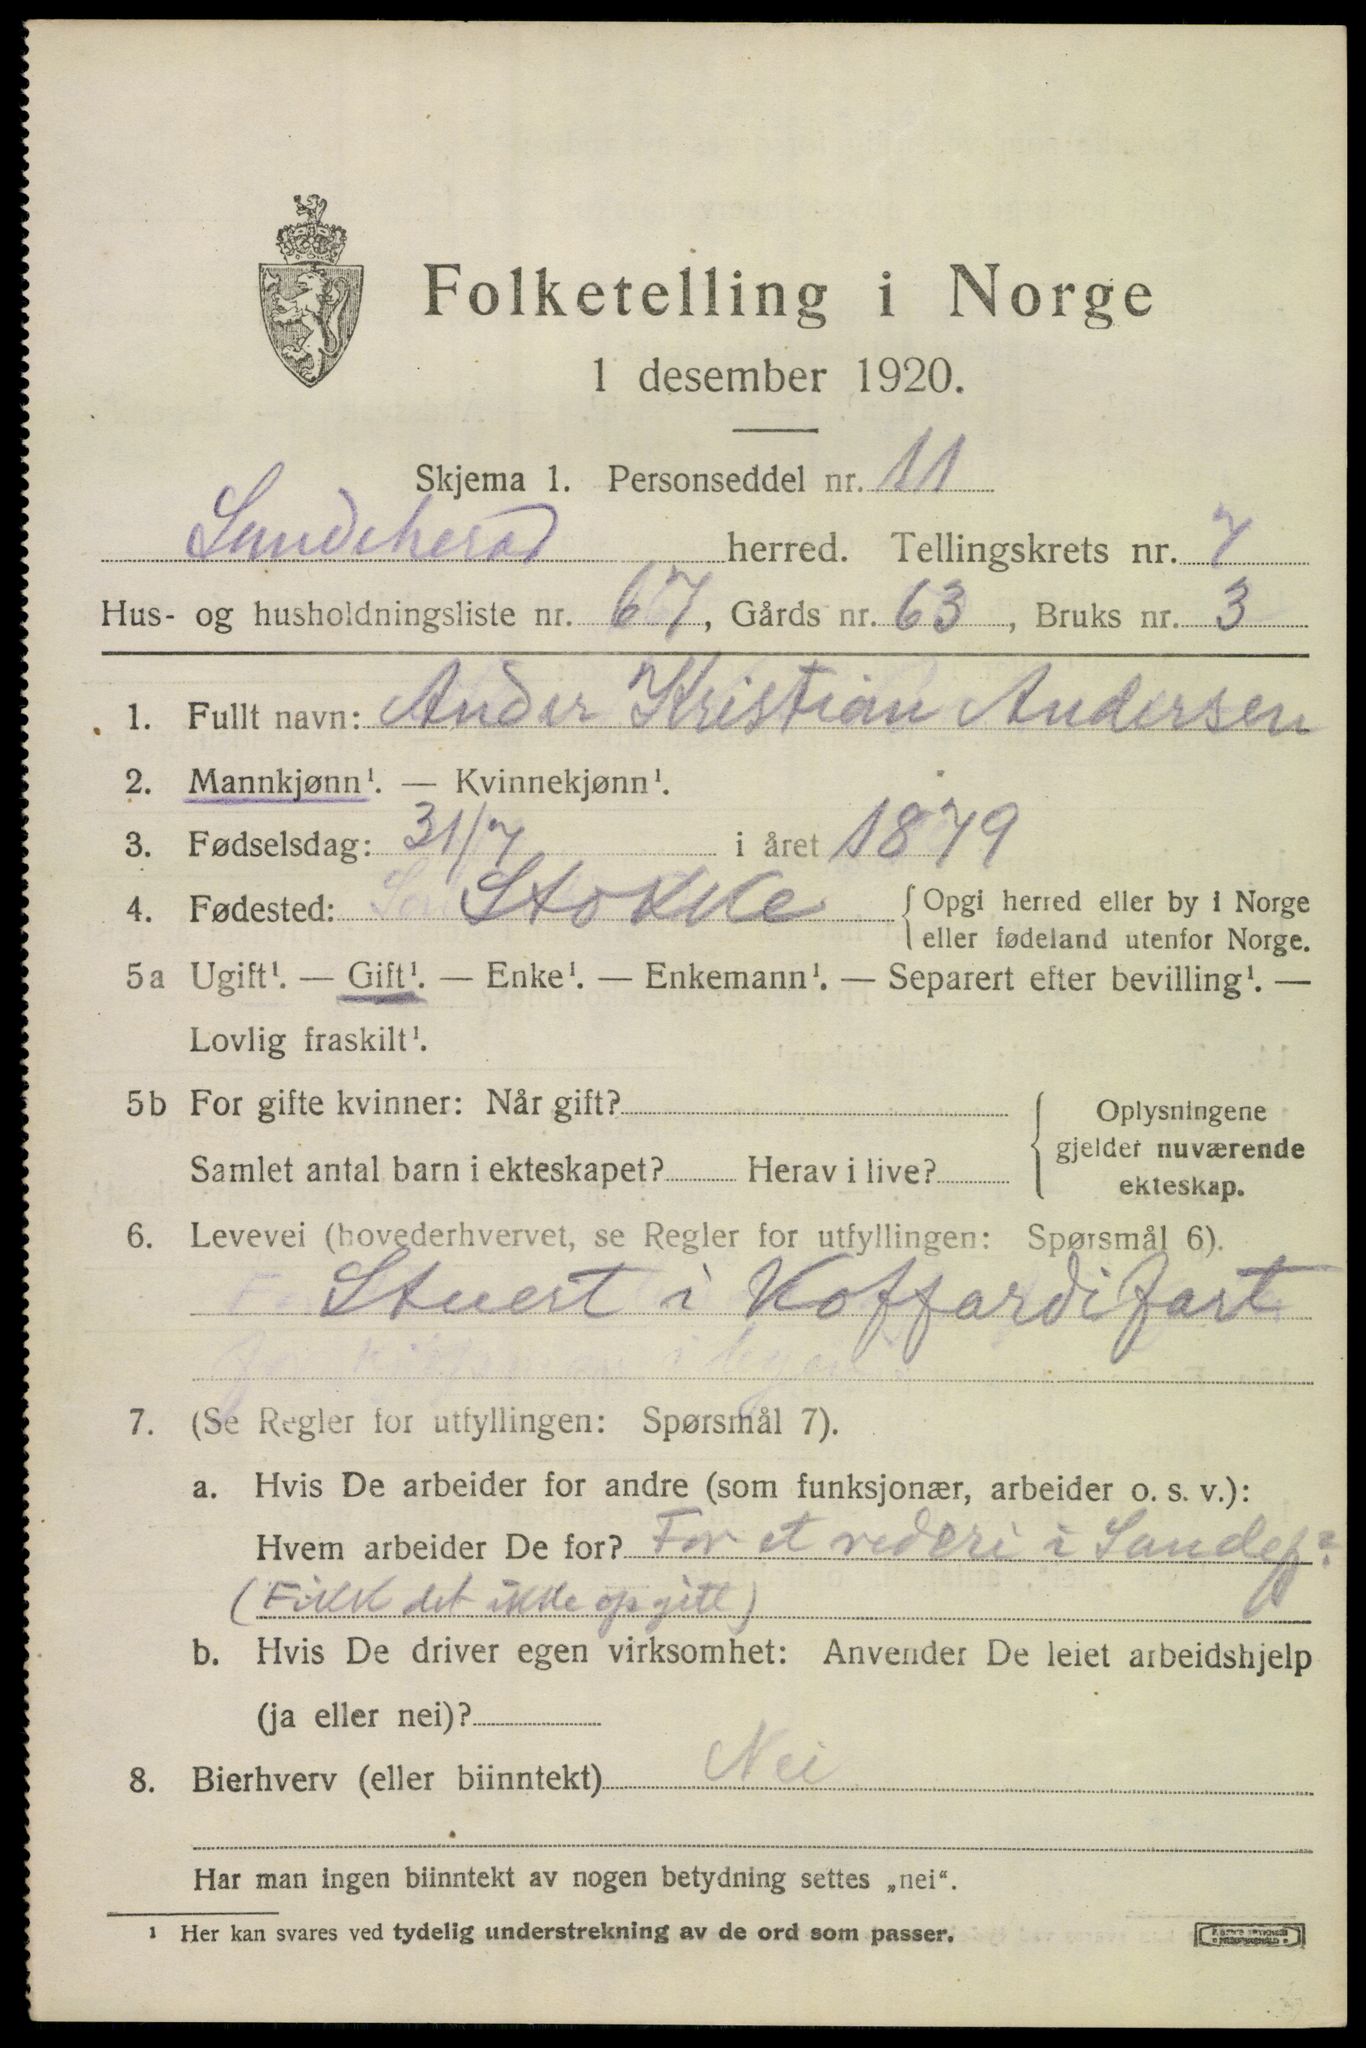 Folketelling i Norge
1 desember 1920.
Skjema 1. Personseddel nr. 11
Sandeherad herred. Tellingskrets nr. 7
Hus- og husholdningsliste nr. 67, Gårds nr. 63, Bruks nr. 3
1. Fullt navn: Ander Kristian Andersen
2. Mannkjønn¹. — Kvinnekjønn¹.
3. Fødselsdag: 31/7 i året 1879
4. Fødested: Stokke { Opgi herred eller by i Norge
eller fødeland utenfor Norge.
5a Ugift¹. — Gift¹. — Enke¹. — Enkemann¹. — Separert efter bevilling¹. —
Lovlig fraskilt¹.
5b For gifte kvinner: Når gift?
Samlet antal barn i ekteskapet? Herav i live?
{ Oplysningene
gjelder nuværende
ekteskap.
6. Levevei (hovederhvervet, se Regler for utfyllingen: Spørsmål 6).
Stuert i Koffardifart
7. (Se Regler for utfyllingen: Spørsmål 7).
a. Hvis De arbeider for andre (som funksjonær, arbeider o. s. v.):
Hvem arbeider De for? For et rederi i Sandefj
(Fikk det ikke opgitt)
b. Hvis De driver egen virksomhet: Anvender De leiet arbeidshjelp
(ja eller nei)?
8. Bierhverv (eller biinntekt) Nei
Har man ingen biinntekt av nogen betydning settes „nei“.
¹ Her kan svares ved tydelig understrekning av de ord som passer.